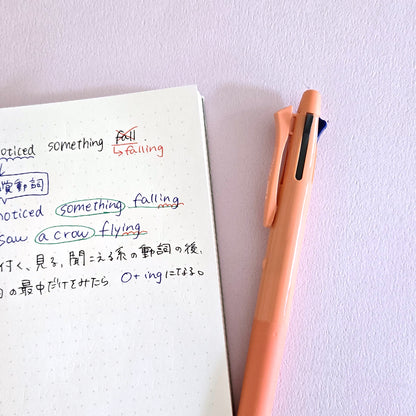 noticed something fall.
↳falling
覚動詞
noticed something falling
saw a crow flying
付く、見る、聞こえる系の動詞の後、
の最中だけをみたら O+ingになる。